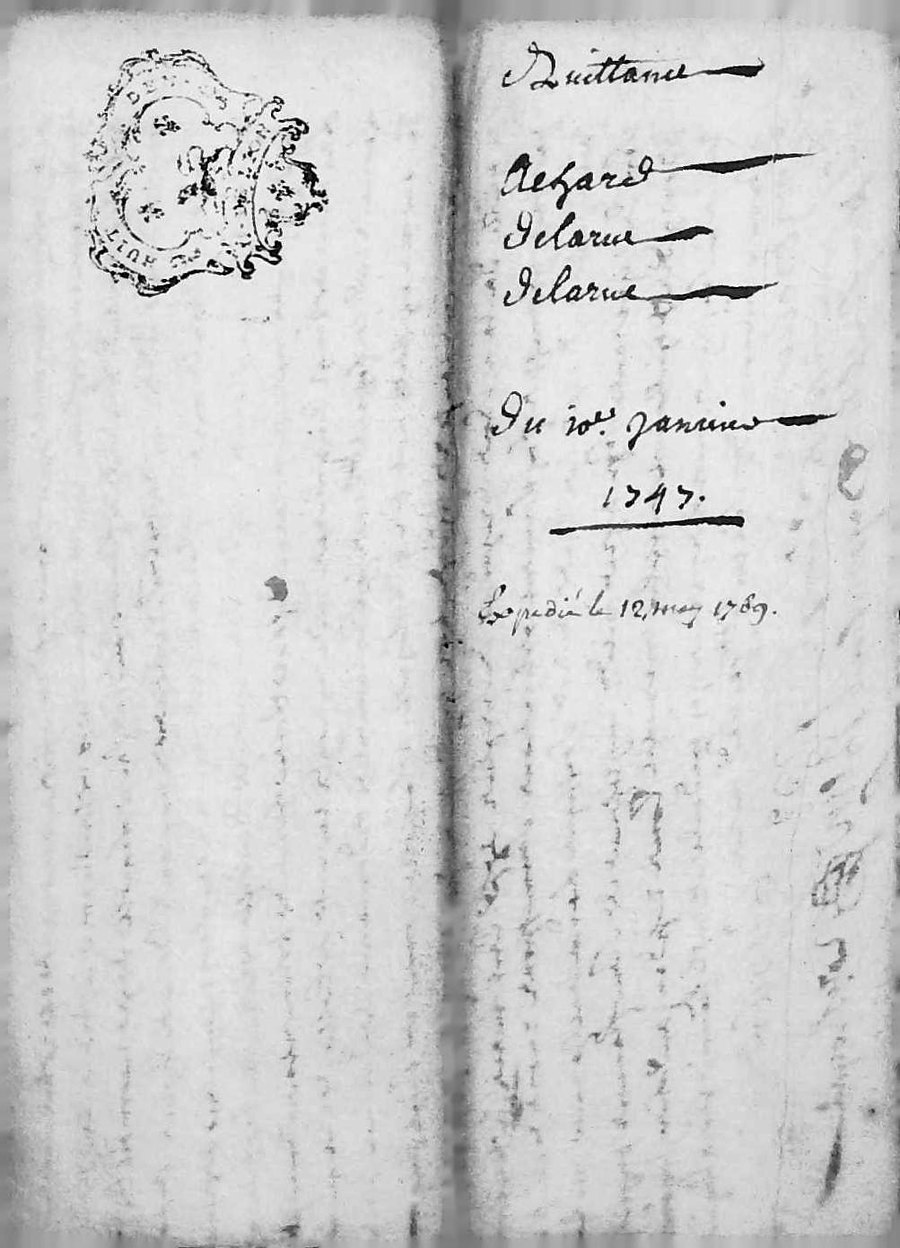 HUIT DEN
Quittance
Achard
Delarue
Delarue
Du 10e. Janvier
1747.
Expedié le 12 may 1769.